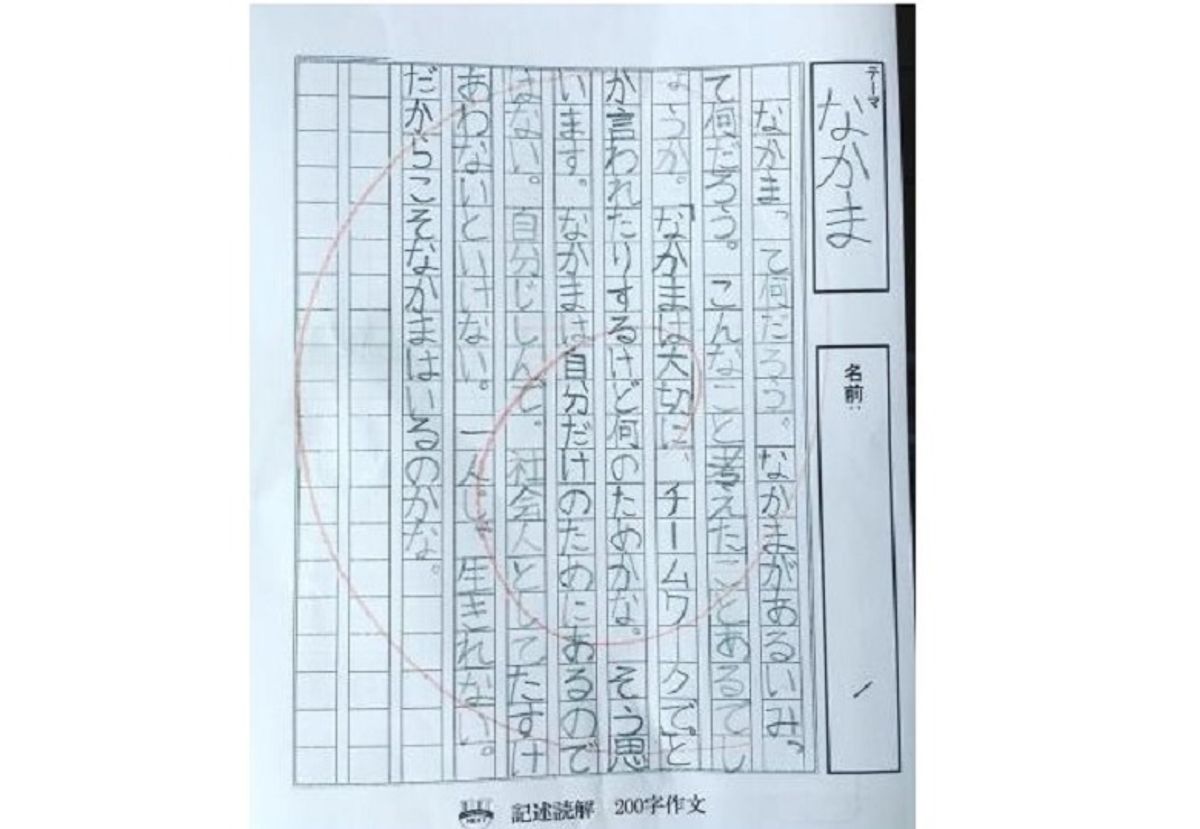 テーマ
なかま
名前:
なかまって何だろう。なかまがあるいみっ
て何だろう。こんなこと考えたことあるでし
ょうか。「なかまは大切に、チームワークで。と
か言われたりするけど何のためかな。そう思
います。なかまは自分だけのためにあるので
はない。自分じしんで。社会人としてたすけ
あわないといけない。一人じゃ生きれない。
だからこそなかまはいるのかな。
記述読解 200字作文